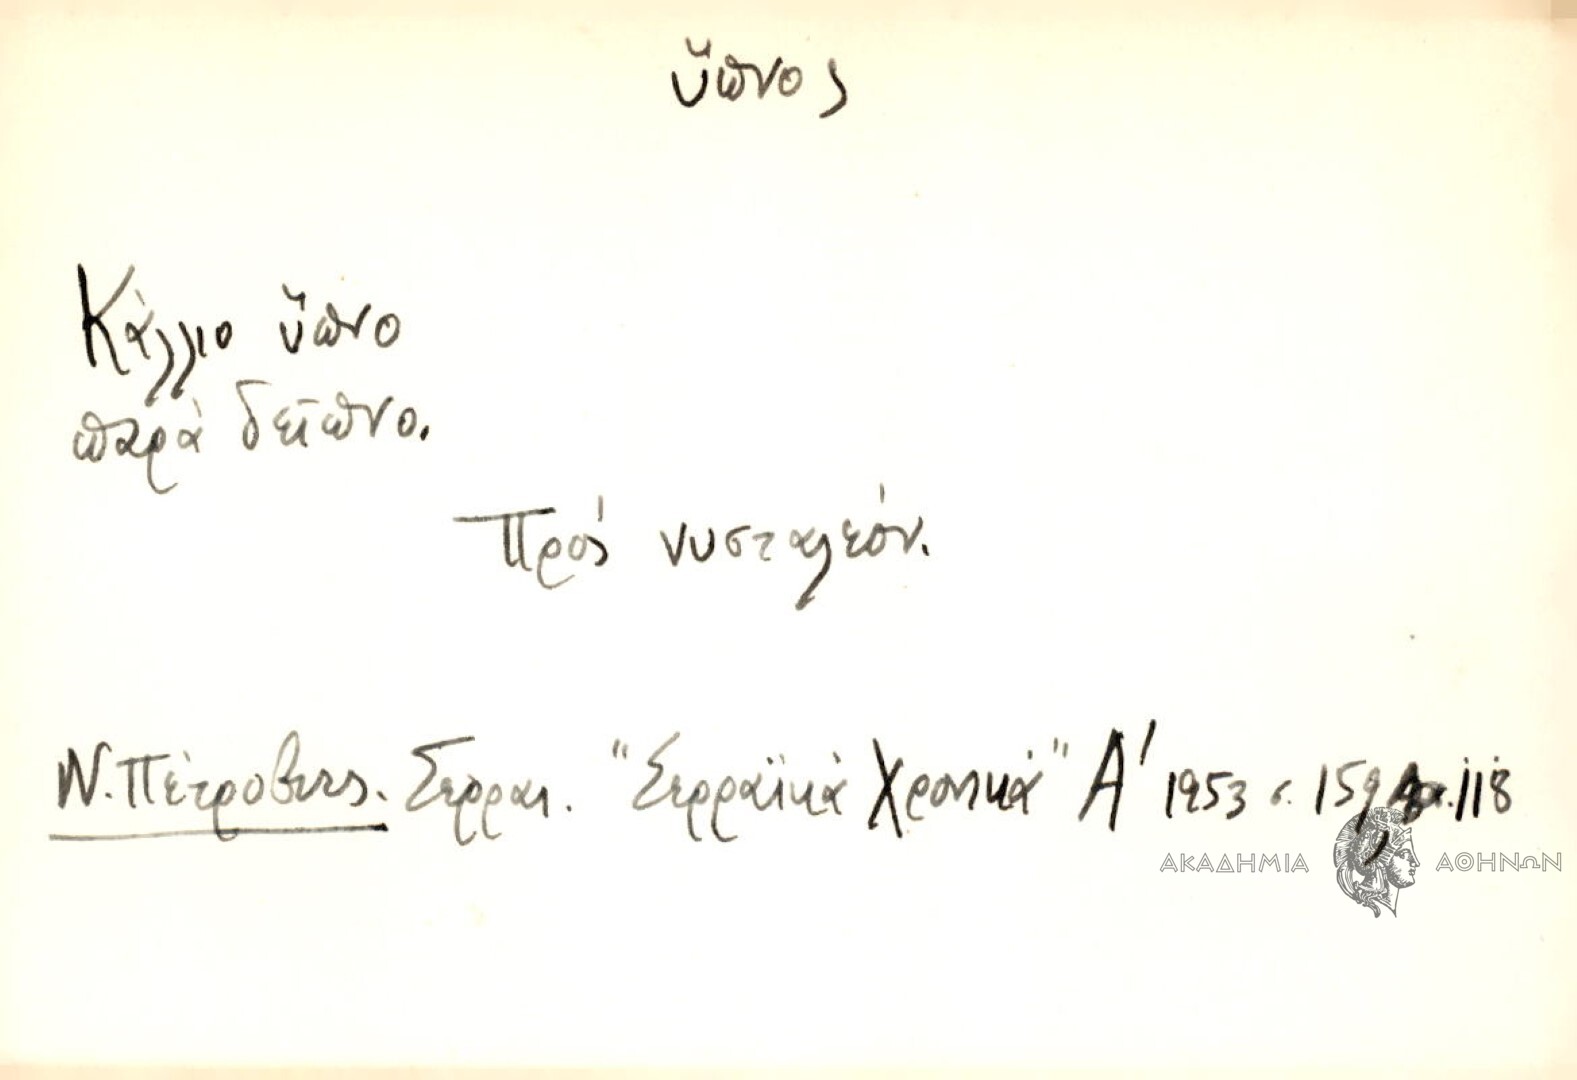 ὕπνος
Κάλλιο ὕπνο
παρὰ δεῖπνο.
Πρὸς νυσταλέον.
Ν. Πέτροβιτς. Σέρραι. "Σερραϊκὰ Χρονικὰ" Α' 1953 σ. 159 118
ΑΚΑΔΗΜΙΑ ΑΘΗΝΩΝ